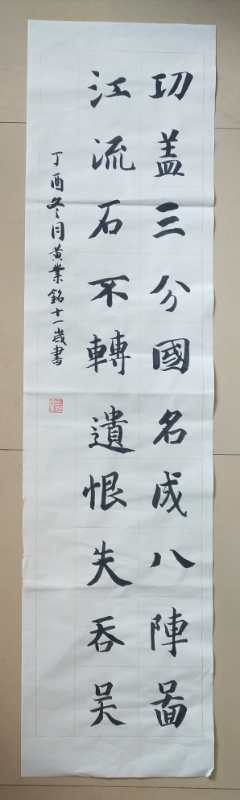 功盖三分國名成八陣圖
江流石不轉遺恨失吞吴
丁酉冬月黄業銘十一歲書